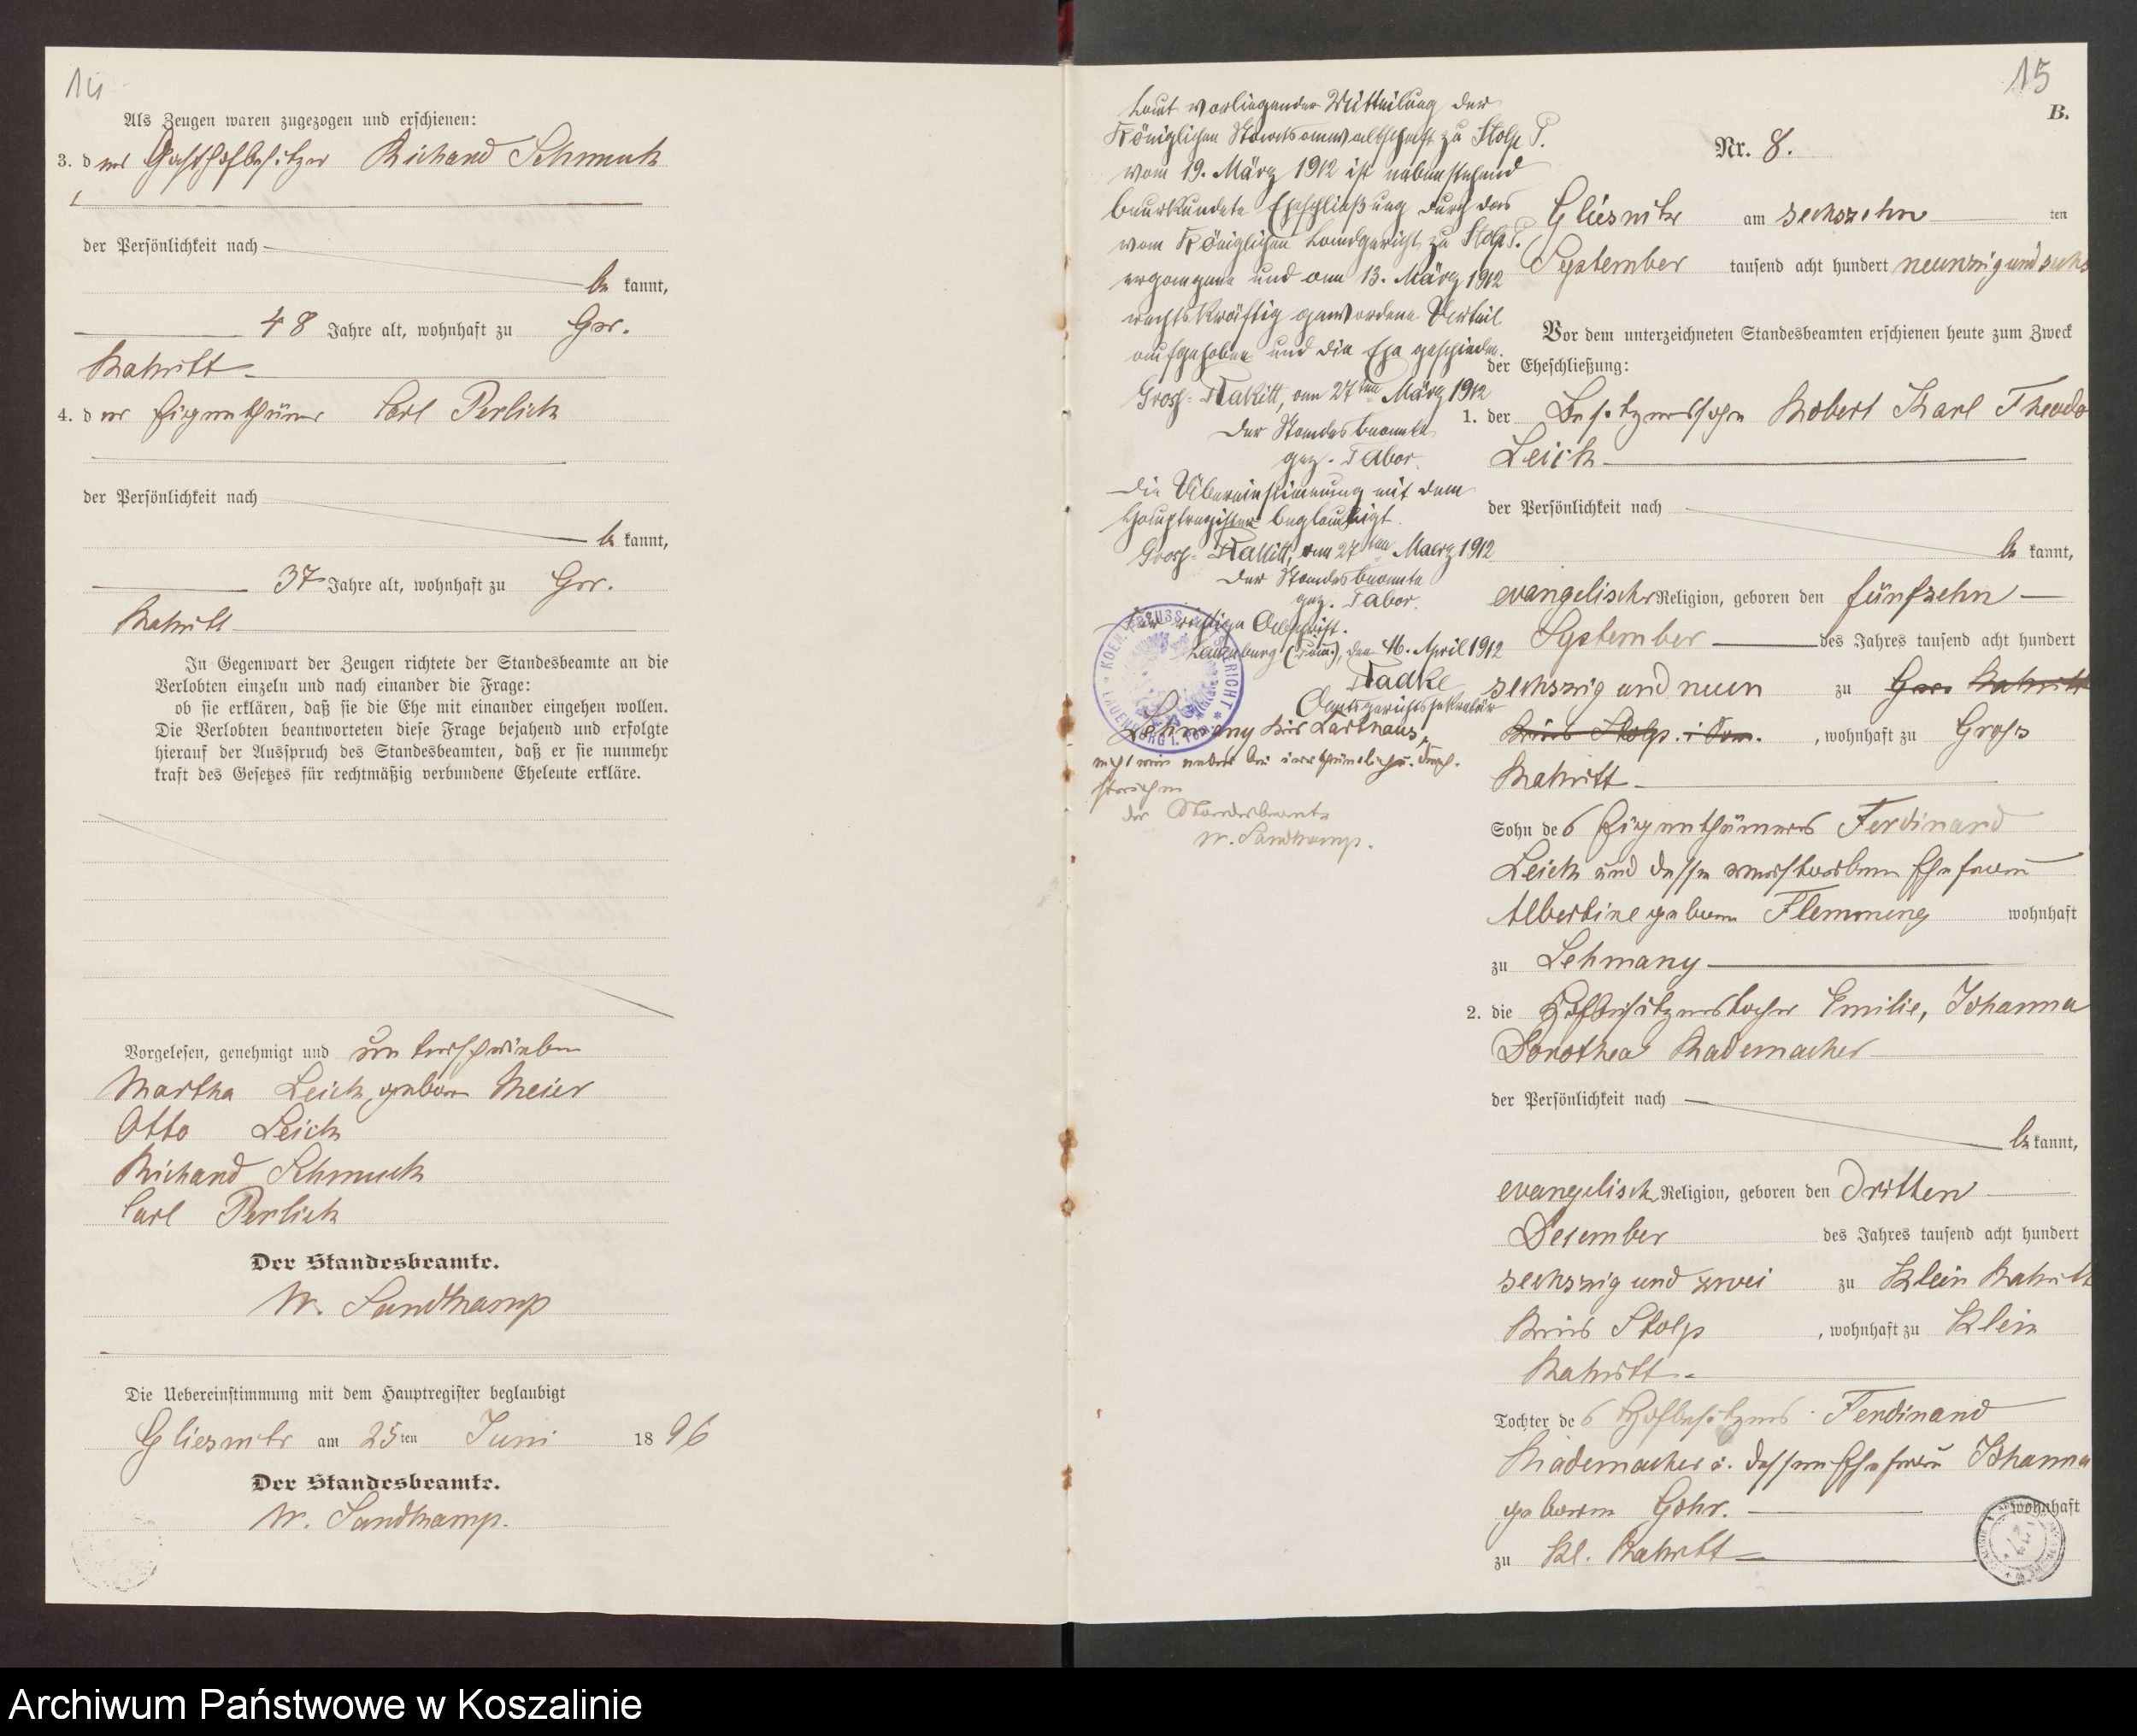 14
Als Zeugen waren zugezogen und erschienen:
3. der Gasthofbesitzer Richard Schmuck
der Persönlichkeit nach
be kannt,
48 Jahre alt, wohnhaft zu Gr.
Rakitt
4. der Eigenthümer Carl Perlick
der Persönlichkeit nach
be kannt,
37 Jahre alt, wohnhaft zu Gr.
Rakitt
In Gegenwart der Zeugen richtete der Standesbeamte an die
Verlobten einzeln und nach einander die Frage:
ob sie erklären, daß sie die Ehe mit einander eingehen wollen.
Die Verlobten beantworteten diese Frage bejahend und erfolgte
hierauf der Ausspruch des Standesbeamten, daß er sie nunmehr
kraft des Gesetzes für rechtmäßig verbundene Eheleute erkläre.
Vorgelesen, genehmigt und unterschrieben
Martha Leick geborn Meier
Otto Leick
Richard Schmuck
Carl Perlick
Der Standesbeamte.
W. Sandkamp
Die Uebereinstimmung mit dem Hauptregister beglaubigt
Gliesnitz am 25ten Juni 1896
Der Standesbeamte.
W. Sandkamp.
15
B.
Laut vorliegender Mitteilung der
Königlichen Staatsanwaltschaft zu Stolp P.
vom 19. März 1912 ist nebenstehend
beurkundete Eheschließung durch das
vom Königlichen Landgericht zu Stolp P.
ergangene und am 13. März 1912
rechtskräftig gewordene Urteil
aufgehoben und die Ehe geschieden.
Gross-Rakitt, am 27ten März 1912
Der Standesbeamte
gez. Tabor.
Die Übereinstimmung mit dem
Hauptregister beglaubigt.
Gross-Rakitt, am 27ten Maerz 1912
Der Standesbeamte
gez. Tabor.
Für richtige Abschrift.
Lauenburg (Pom.), den 16. April 1912
Radke
Amtsgerichtssekretär
Lehmany Kreis Carthaus,
der Standesbeamte
W. Sandkamp.
Nr. 8.
Gliesnitz am sechszehn ten
September tausend acht hundert neunzig und sechs
Vor dem unterzeichneten Standesbeamten erschienen heute zum Zweck
der Eheschließung:
1. der Besitzerssohn Robert Karl Theodo
Leick
der Persönlichkeit nach
be kannt,
evangelischer Religion, geboren den fünfzehn
September des Jahres tausend acht hundert
sechszig und neun zu Gross Rakitt
Kreis Stolp i. Pom. , wohnhaft zu Gross
Rakitt
Sohn des Eigenthümers Ferdinand
Leick und dessen verstorbenen Ehefrau
Albertine geboren Flemming wohnhaft
zu Lehmany
2. die Hofbesitzerstochter Emilie, Johanna
Dorothea Rademacher
der Persönlichkeit nach
be kannt,
evangelischer Religion, geboren den dritten
Dezember des Jahres tausend acht hundert
sechszig und zwei zu Klein Rakitt
Kreis Stolp , wohnhaft zu Klein
Rakitt
Tochter des Hofbesitzers Ferdinand
Rademacher u. dessen Ehefrau Johanna
geboren Gohr. wohnhaft
zu Kl. Rakitt
Archiwum Państwowe w Koszalinie